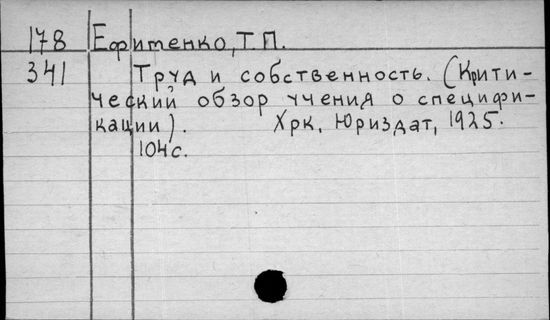 178 Ефитенко, Т.П.
341 Труд и собственность. (Крити-
ческий обзор учения о специфи-
кации). Хрк, Юриздат, 1925.
104с.